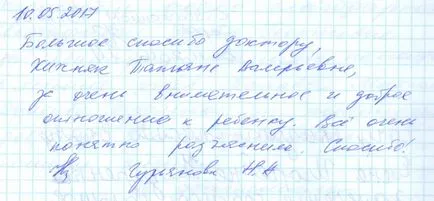 10.05.2017
Большое спасибо доктору,
Хижняк Татьяне Валерьевне,
за очень внимательное и доброе
отношение к ребенку. Всё очень
понятно разъяснила. Спасибо!
Гурьянова Н.А